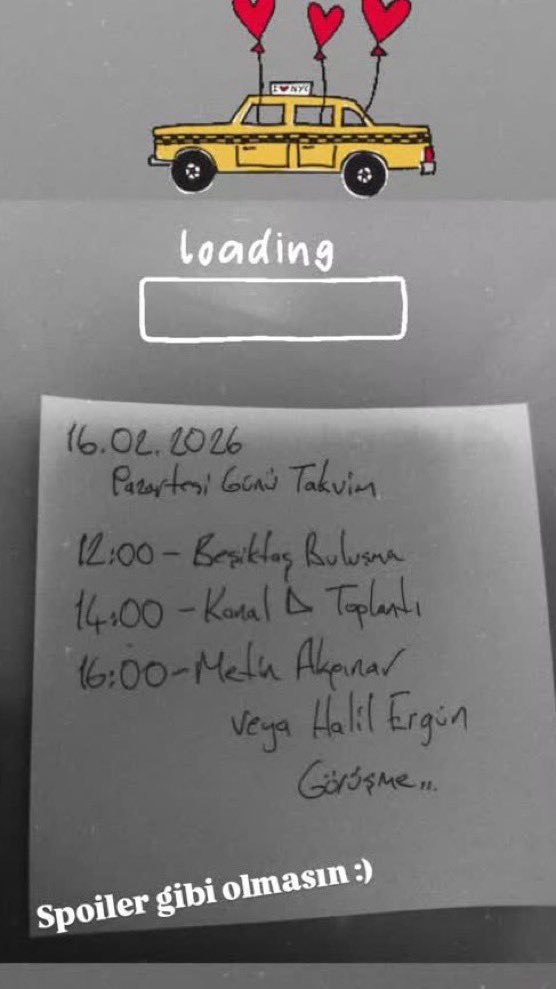 I ♥ NYC
loading
16.02.2026
Pazartesi Günü Takvim
12:00 - Beşiktaş Buluşma
14:00 - Kanal D Toplantı
16:00 - Metin Akpınar
veya Halil Ergün
Görüşme...
Spoiler gibi olmasın :)